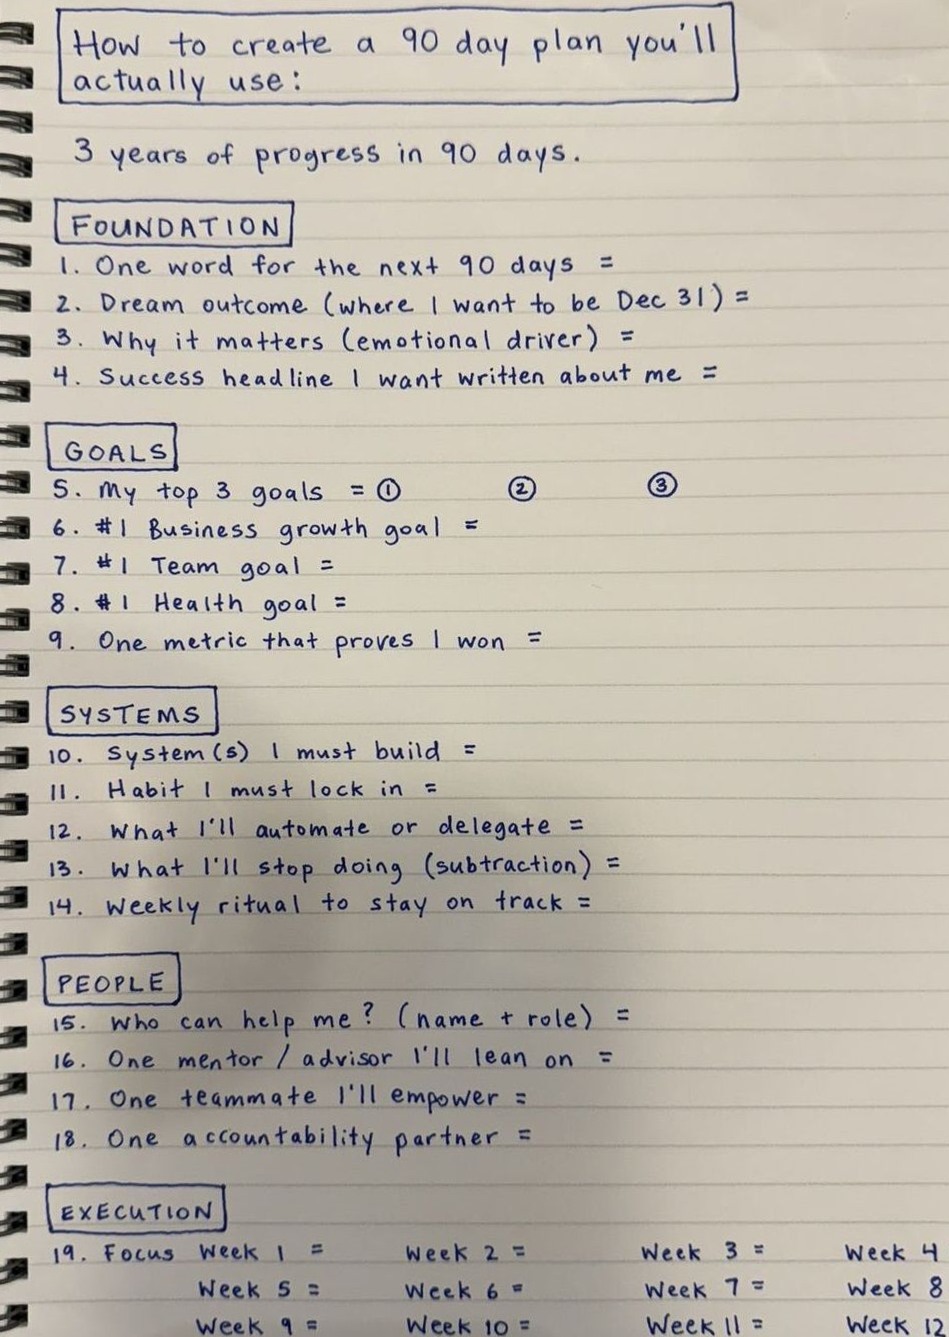 How to create a 90 day plan you'll
actually use:
3 years of progress in 90 days.
FOUNDATION
1. One word for the next 90 days =
2. Dream outcome (where I want to be Dec 31) =
3. Why it matters (emotional driver) =
4. Success headline I want written about me =
GOALS
5. My top 3 goals = ① ② ③
6. #1 Business growth goal =
7. #1 Team goal =
8. #1 Health goal =
9. One metric that proves I won =
SYSTEMS
10. System(s) I must build =
11. Habit I must lock in =
12. What I'll automate or delegate =
13. What I'll stop doing (subtraction) =
14. Weekly ritual to stay on track =
PEOPLE
15. Who can help me? (name + role) =
16. One mentor / advisor I'll lean on =
17. One teammate I'll empower =
18. One accountability partner =
EXECUTION
19. Focus Week 1 = Week 2 = Week 3 = Week 4
Week 5 = Week 6 = Week 7 = Week 8
Week 9 = Week 10 = Week 11 = Week 12